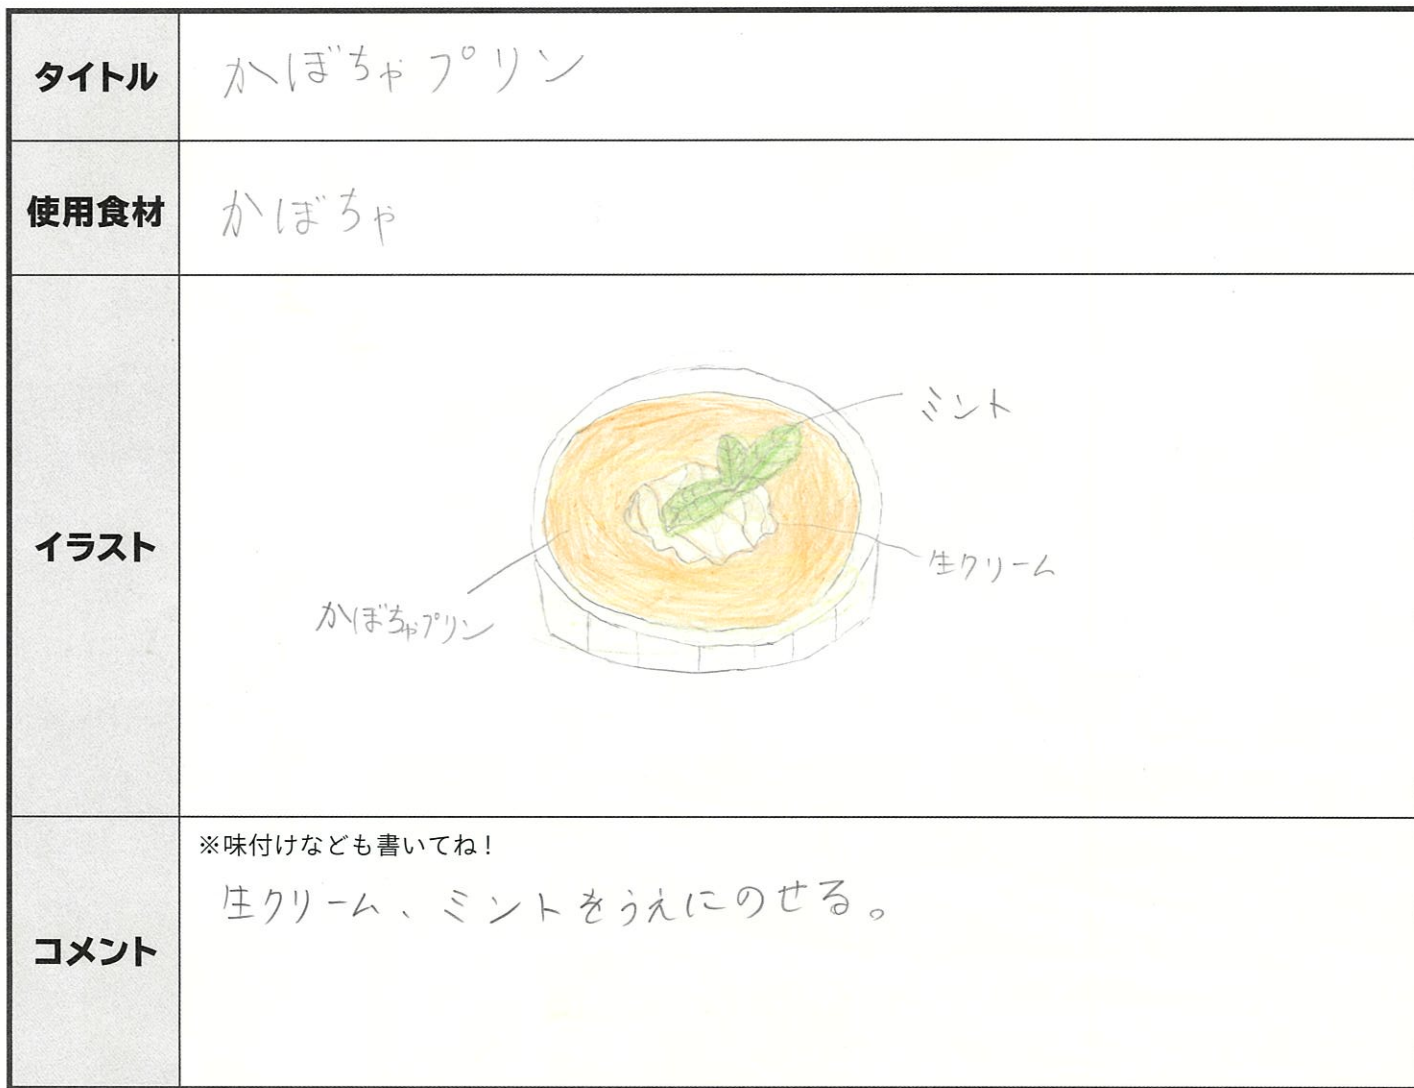 タイトル
かぼちゃプリン
使用食材
かぼちゃ
イラスト
ミント
生クリーム
かぼちゃプリン
コメント
※味付けなども書いてね!
生クリーム、ミントをうえにのせる。